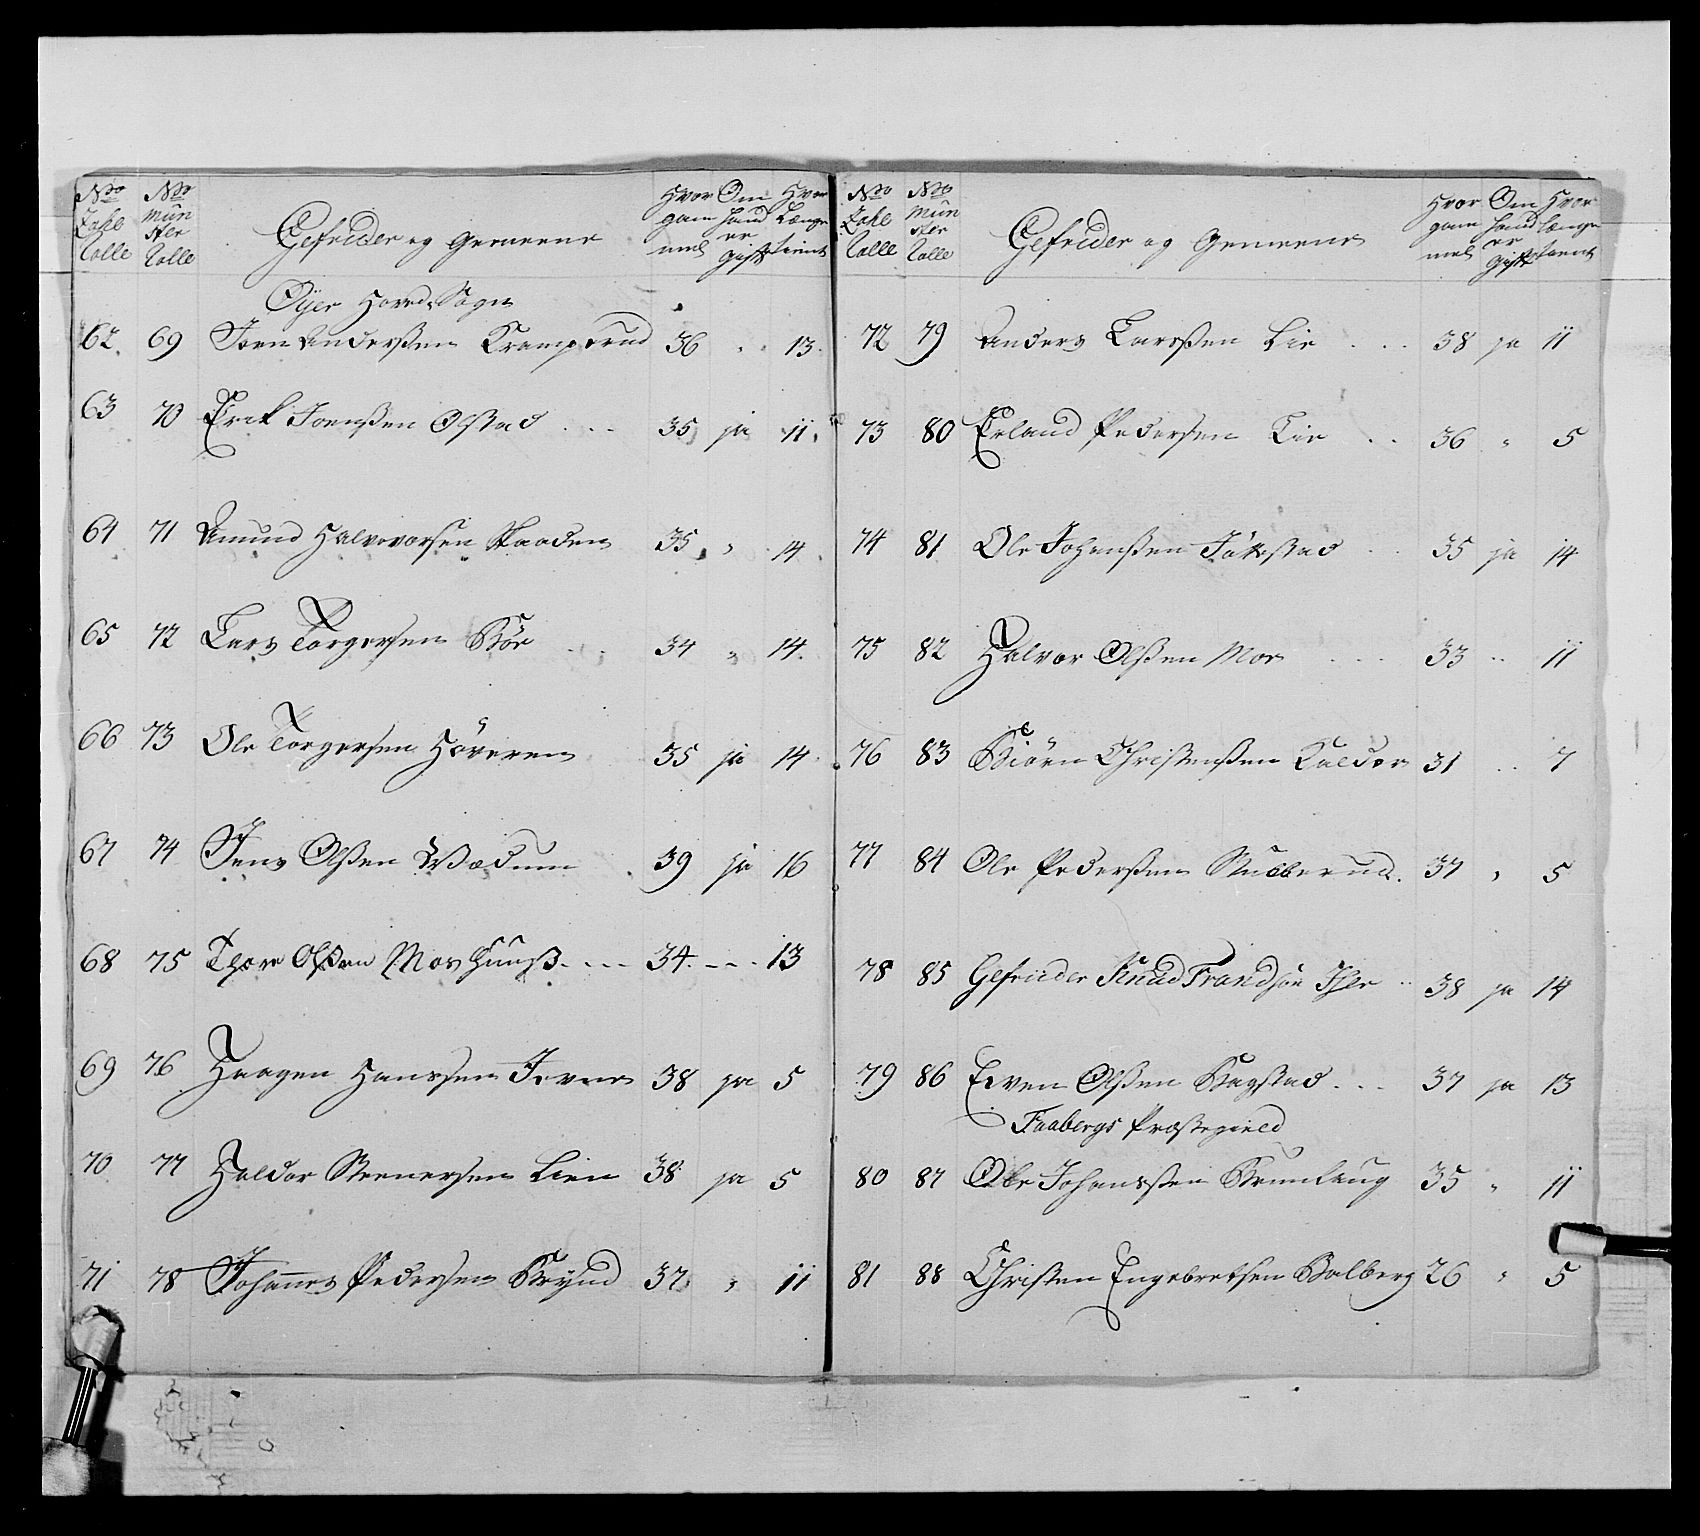 No Zahl Rolle | No Mün ster Rolle | Gefreider og Gemeene | Hvor gam mel | Om hand er Gift | Hvor Længe tient
Øÿer Hoved Sogn
62. 69 Joen Anderssen Kramperud 36 " 13.
63 70 Erik Joenssen Olstad 35 ja 11.
64 71 Amund Halvorsen Skaaden 35 " 14.
65 72 Lars Torgersen Böe 34 " 14.
66 73 Ole Torgersen Höveren 35 ja 14.
67 74 Jens Olssen Wedum 39 ja 16
68 75 Thore Olssen Moshuuss 34 13
69 76 Haagen Hanssen 38 ja 5
70 77 Haldor Steenersen Lien 38 ja 5
71 78 Johannes Pedersen Brÿnd 37 " 11
No Zahl Rolle | No Mün ster Rolle | Gefreider og Gemeene | Hvor gam mel | Om hand er Gift | Hvor længe tient
72 79 Anders Larssen Lie 38 ja 11
73 80 Erland Pedersen Lie 36 " 5
74 81 Ole Johanssen 35 ja 14
75 82 Halvor Olssen Moe 33 " 11
76 83 Biörn Christenssen Kalder 31 7
77 84 Ole Pederssen Stubberud. 37 " 5
78 85 Gefrider Knud Frandsön 38 ja 14
79 86 Even Olssen Bagstad 37 ja 13
Faabergs Præstegield
80 87 Ole Johanssen Brunlaug 35 " 11
81 88 Christen Engebretsen Balberg 26 " 5